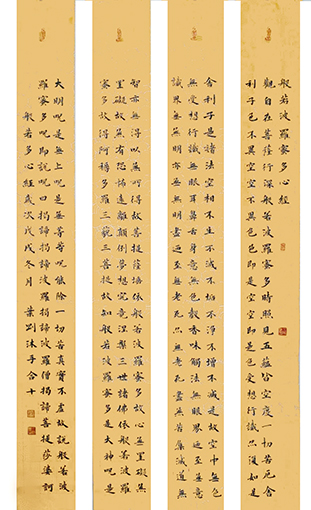 般若波羅蜜多心經
觀自在菩薩行深般若波羅蜜多時照見五蘊皆空度一切苦厄舍
利子色不異空空不異色色即是空空即是色受想行識亦復如是
舍利子是諸法空相不生不滅不垢不淨不增不減是故空中無色
無受想行識無眼耳鼻舌身意無色聲香味觸法無眼界迺至無意
識界無無明亦無無明盡迺至無老死亦無老死盡無苦集滅道無
智亦無得以無所得故菩提薩埵依般若波羅蜜多故心無罣礙無
罣礙故無有恐怖遠離顛倒夢想究竟涅槃三世諸佛依般若波羅
蜜多故得阿耨多羅三藐三菩提故知般若波羅蜜多是大神呪是
大明呪是無上呪是無等等呪能除一切苦真實不虛故說般若波
羅蜜多呪即說呪曰揭諦揭諦波羅揭諦波羅僧揭諦菩提薩婆訶
般若多心經歲次戊戌冬月 葉 沐手合十